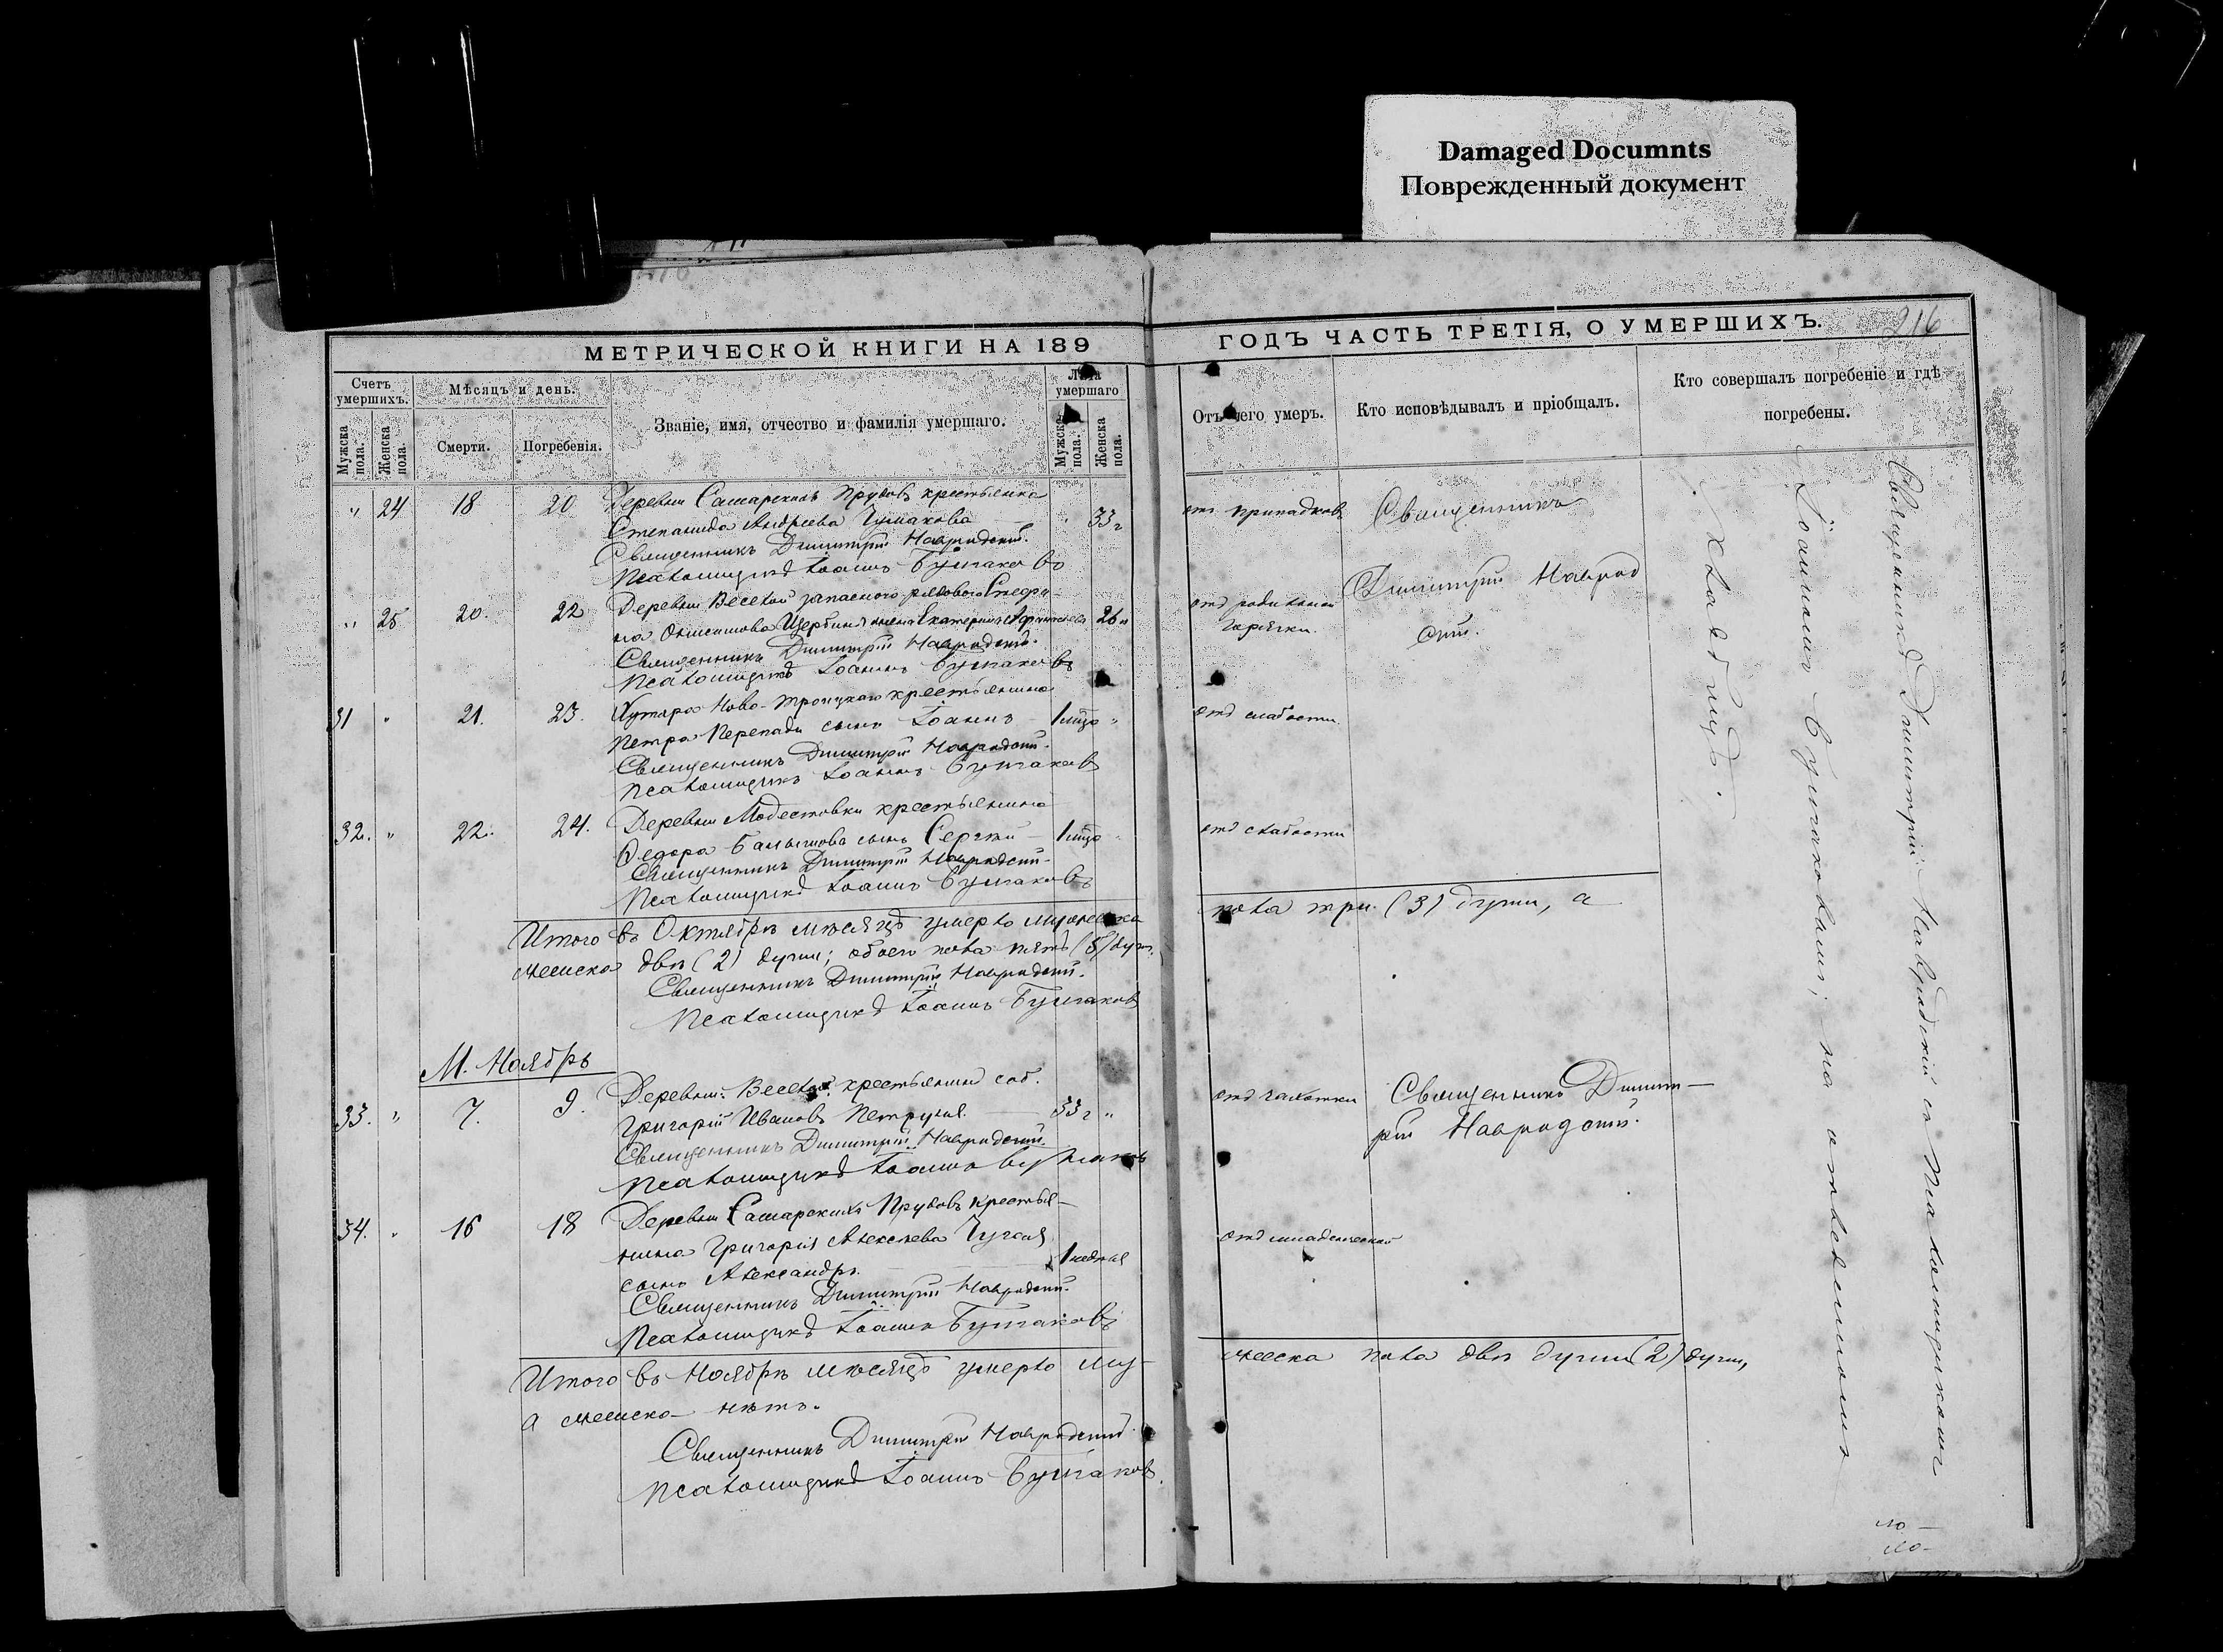 Damaged Documnts
Поврежденный документ
216
МЕТРИЧЕСКОЙ КНИГИ НА 189
ГОДЪ ЧАСТЬ ТРЕТІЯ, О УМЕРШИХЪ.
Счетъ умершихъ.
Мужска пола.
Женска пола.
Мѣсяцъ и день.
Смерти.
Погребенія.
Званіе, имя, отчество и фамилія умершаго.
Лѣта умершаго
Мужска пола.
Женска пола.
Отъ чего умеръ.
Кто исповѣдывалъ и пріобщалъ.
Кто совершалъ погребеніе и гдѣ погребены.
" 24 18 20 Деревни Самарскихъ Прудовъ крестьянка
Степанида Андреева Чумакова 33 г
Священникъ Димитрій Навродскій.
Псаломщикъ Іоаннъ Булгаковъ
отъ припадковъ
Священникъ
Димитрій Наврод
скій.
" 25 20. 22 Деревни Веселой запаснаго рядового Стефа-
на Онисимова Щербины жена Екатерина 26 л
Священникъ Димитрій Навродскій.
Псаломщикъ Іоаннъ Булгаковъ
отъ родильной
горячки.
31 " 21. 23. Хутора Ново-Троицкаго крестьянина
Петра Перепади сынъ Іоаннъ 1 мца "
Священникъ Димитрій Навродскій.
Псаломщикъ Іоаннъ Булгаковъ
отъ слабости.
32. " 22. 24. Деревни Модестовки крестьянина
Федора сынъ Сергѣй 1 мца
Священникъ Димитрій Навродскій.
Псаломщикъ Іоаннъ Булгаковъ
отъ слабости
Итого въ Октябрѣ мѣсяцѣ умерло мужеска
пола три (3) души, а
женска двѣ (2) души; обоего пола пять (5) душ.
Священникъ Димитрій Навродскій.
Псаломщикъ Іоаннъ Булгаковъ
М. Ноябрь
33. " 7. 9. Деревни Веселой крестьянинъ соб.
Григорій Ивановъ 33 г "
Священникъ Димитрій Навродскій.
Псаломщикъ Іоаннъ Булгаковъ
отъ чахотки
Священникъ Димит-
рій Навродскій.
34. " 16 18 Деревни Самарскихъ Прудовъ крестья-
нина Григорія Алексѣева
сынъ Александръ. 1 недѣля
Священникъ Димитрій Навродскій.
Псаломщикъ Іоаннъ Булгаковъ
отъ младенческой
Итого въ Ноябрѣ мѣсяцѣ умерло му-
жеска пола двѣ души (2) души,
а женска нѣтъ.
Священникъ Димитрій Навродскій.
Псаломщикъ Іоаннъ Булгаковъ.
Священникъ Димитрій Навродскій съ Псаломщикомъ
Іоанномъ Булгаковымъ; на отведенномъ
кладбищѣ.